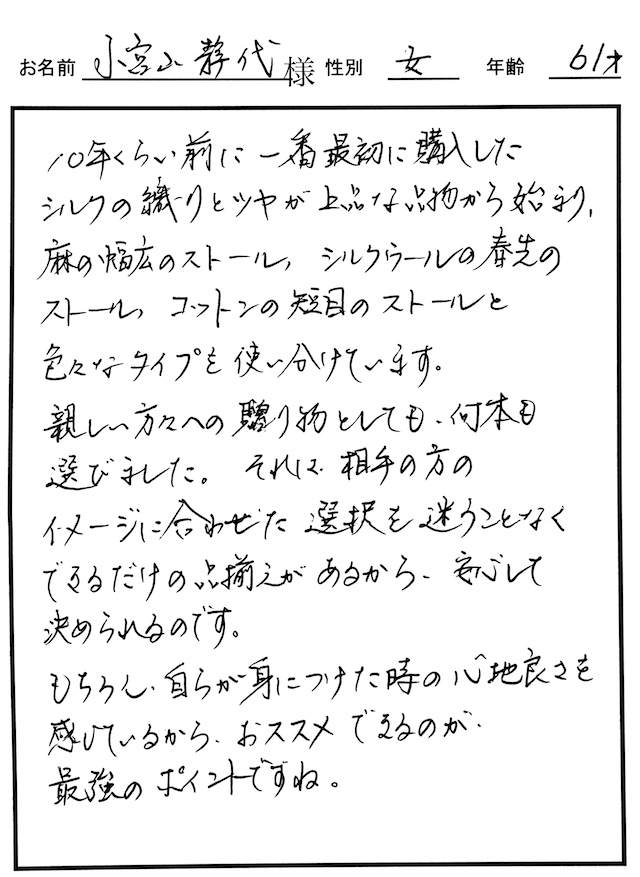 お名前 小宮山 静代 様 性別 女 年齢 61才
10年くらい前に一番最初に購入した
シルクの織りとツヤが上品な品物から始まり、
麻の幅広のストール、シルクウールの春先の
ストール、コットンの短目のストールと
色々なタイプを使い分けています。
親しい方々への贈り物としても、何本も
選びました。それは、相手の方の
イメージに合わせた選択を迷うことなく
できるだけの品揃えがあるから、安心して
決められるのです。
もちろん、自らが身につけた時の心地良さを
感じているから、おススメできるのが、
最強のポイントですね。